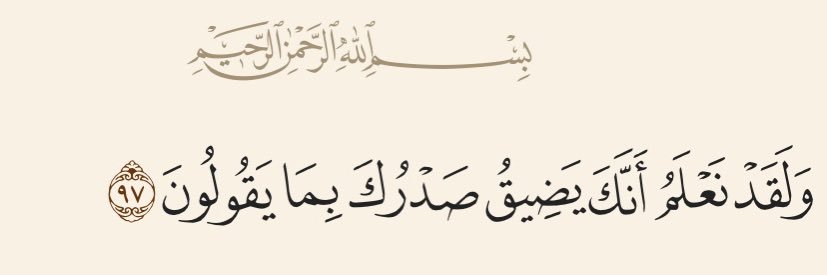 بِسْمِ ٱللَّهِ ٱلرَّحْمَٰنِ ٱلرَّحِيمِ
وَلَقَدْ نَعْلَمُ أَنَّكَ يَضِيقُ صَدْرُكَ بِمَا يَقُولُونَ ٩٧